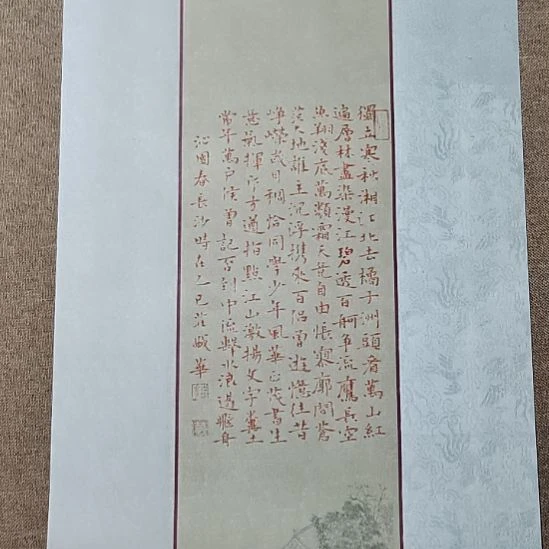 獨立寒秋湘江北去橘子洲頭看萬山紅
遍層林盡染漫江碧透百舸爭流鷹長空
魚翔淺底萬類霜天競自由悵寥廓問蒼
茫大地誰主沉浮携來百侶曾遊憶往昔
崢嶸歲月稠恰同學少年風華正茂書生
意氣揮斥方遒指點江山激揚文字糞土
當年萬户侯曾記否到中流擊水浪遏飛舟
沁園春長沙時在乙巳 華